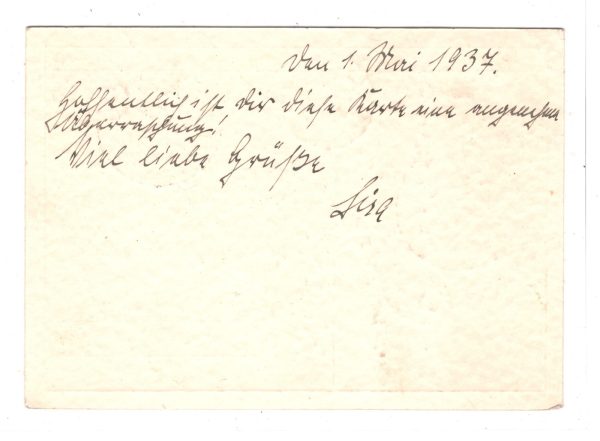 den 1. Mai 1937.
Hoffentlich ist dir diese Karte eine angenehme
Überraschung!
Viel liebe Grüße
Lisa